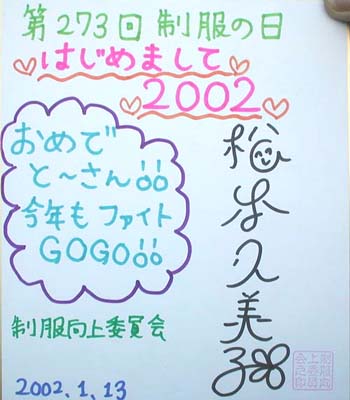 第273回 制服の日
はじめまして
2002
おめで
と〜さん!!
今年も ファイト
GOGO!!
制服向上委員会
2002.1.13
松本久美子
制服向
上委員
会之印